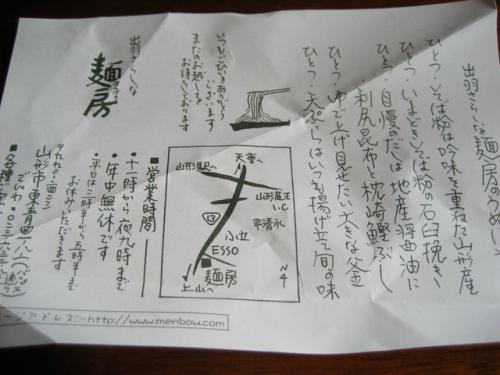 出羽さらしな 麺房
ひとつ・そば粉は吟味を重ねた山形産
ひとつ・いまどきそば粉の石臼挽き
ひとつ・自慢のだしは地産醤油に
利尻昆布と枕崎鰹ぶし
ひとつ・ゆで上げ見せたい大きな釜
ひとつ・天ぷらはいつも揚げ立て旬の味
いつもごひいきありがとう
ございます
またのお越しを
お待ちしております
出羽さらしな
麺房
天童へ
山形駅へ
山形蔵王
I.C
平清水
13
小立
ESSO
麺房
上山へ
N
4
■営業時間
・十一時から夜九時まで
・年中無休です
・平日は三時半から五時半まで
お休みいただきます
山形市東青田
http://www.menbow.com